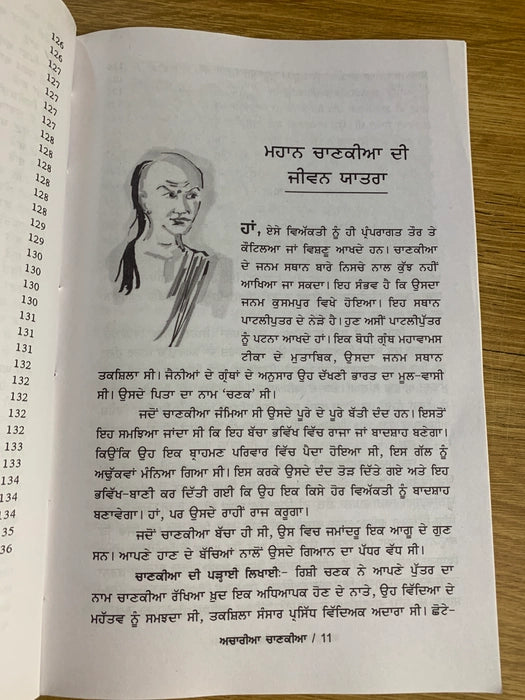 126
126
127
127
127
127
127
128
128
128
128
128
128
129
129
130
130
130
130
131
131
131
132
132
132
132
132
133
133
134
134
35
36
ਮਹਾਨ ਚਾਣਕੀਆ ਦੀ
ਜੀਵਨ ਯਾਤਰਾ
ਹਾਂ, ਏਸੇ ਵਿਅੱਕਤੀ ਨੂੰ ਹੀ ਪ੍ਰੰਪਰਾਗਤ ਤੌਰ ਤੇ
ਕੌਟਲਿਆ ਜਾਂ ਵਿਸ਼ਣੂ ਆਖਦੇ ਹਨ। ਚਾਣਕੀਆ
ਦੇ ਜਨਮ ਸਥਾਨ ਬਾਰੇ ਨਿਸਚੇ ਨਾਲ ਕੁੱਝ ਨਹੀਂ
ਆਖਿਆ ਜਾ ਸਕਦਾ। ਇਹ ਸੰਭਵ ਹੈ ਕਿ ਉਸਦਾ
ਜਨਮ ਕੁਸਮਪੁਰ ਵਿਖੇ ਹੋਇਆ। ਇਹ ਸਥਾਨ
ਪਾਟਲੀਪੁਤਰ ਦੇ ਨੇੜੇ ਹੈ। ਹੁਣ ਅਸੀਂ ਪਾਟਲੀਪੁੱਤਰ
ਨੂੰ ਪਟਨਾ ਆਖਦੇ ਹਾਂ। ਇਕ ਬੋਧੀ ਗ੍ਰੰਥ ਮਹਾਵਾਮਸ
ਟੀਕਾ ਦੇ ਮੁਤਾਬਿਕ, ਉਸਦਾ ਜਨਮ ਸਥਾਨ
ਤਕਸ਼ਿਲਾ ਸੀ। ਜੈਨੀਆਂ ਦੇ ਗ੍ਰੰਥਾਂ ਦੇ ਅਨੁਸਾਰ ਉਹ ਦੱਖਣੀ ਭਾਰਤ ਦਾ ਮੂਲ-ਵਾਸੀ
ਸੀ। ਉਸਦੇ ਪਿਤਾ ਦਾ ਨਾਮ 'ਚਣਕ' ਸੀ।
ਜਦੋਂ ਚਾਣਕੀਆ ਜੰਮਿਆ ਸੀ ਉਸਦੇ ਪੂਰੇ ਦੇ ਪੂਰੇ ਬੱਤੀ ਦੰਦ ਹਨ। ਇਸਤੋਂ
ਇਹ ਸਮਝਿਆ ਜਾਂਦਾ ਸੀ ਕਿ ਇਹ ਬੱਚਾ ਭਵਿੱਖ ਵਿੱਚ ਰਾਜਾ ਜਾਂ ਬਾਦਸ਼ਾਹ ਬਣੇਗਾ।
ਕਿਉਂਕਿ ਉਹ ਇਕ ਬ੍ਰਾਹਮਣ ਪਰਿਵਾਰ ਵਿੱਚ ਪੈਦਾ ਹੋਇਆ ਸੀ, ਇਸ ਗੱਲ ਨੂੰ
ਅਢੁੱਕਵਾਂ ਮੰਨਿਆ ਗਿਆ ਸੀ। ਇਸ ਕਰਕੇ ਉਸਦੇ ਦੰਦ ਤੋੜ ਦਿੱਤੇ ਗਏ ਅਤੇ ਇਹ
ਭਵਿੱਖ-ਬਾਣੀ ਕਰ ਦਿੱਤੀ ਗਈ ਕਿ ਉਹ ਇਕ ਕਿਸੇ ਹੋਰ ਵਿਅੱਕਤੀ ਨੂੰ ਬਾਦਸ਼ਾਹ
ਬਣਾਵੇਗਾ। ਹਾਂ, ਪਰ ਉਸਦੇ ਰਾਹੀਂ ਰਾਜ ਕਰੂਗਾ।
ਜਦੋਂ ਚਾਣਕੀਆ ਬੱਚਾ ਹੀ ਸੀ, ਉਸ ਵਿਚ ਜਮਾਂਦਰੂ ਇਕ ਆਗੂ ਦੇ ਗੁਣ
ਸਨ। ਆਪਣੇ ਹਾਣ ਦੇ ਬੱਚਿਆਂ ਨਾਲੋਂ ਉਸਦੇ ਗਿਆਨ ਦਾ ਪੱਧਰ ਵੱਧ ਸੀ।
ਚਾਣਕੀਆ ਦੀ ਪੜ੍ਹਾਈ ਲਿਖਾਈ:- ਰਿਸ਼ੀ ਚਣਕ ਨੇ ਆਪਣੇ ਪੁੱਤਰ ਦਾ
ਨਾਮ ਚਾਣਕੀਆ ਰੱਖਿਆ ਖ਼ੁਦ ਇਕ ਅਧਿਆਪਕ ਹੋਣ ਦੇ ਨਾਤੇ, ਉਹ ਵਿੱਦਿਆ ਦੇ
ਮਹੱਤਵ ਨੂੰ ਸਮਝਦਾ ਸੀ, ਤਕਸ਼ਿਲਾ ਸੰਸਾਰ ਪ੍ਰਸਿੱਧ ਵਿੱਦਿਅਕ ਅਦਾਰਾ ਸੀ। ਛੋਟੇ-
ਅਚਾਰੀਆ ਚਾਣਕੀਆ / 11